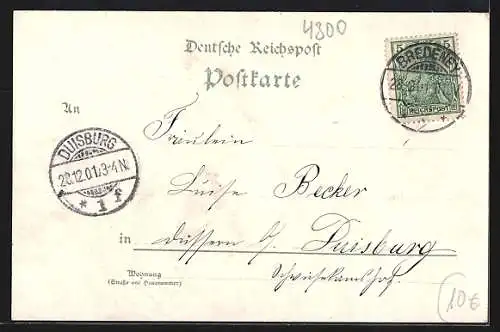 4300
Deutsche Reichspost
Postkarte
5 5
BREDENEY
REICHSPOST
An
Fräulein
DUISBURG
28.12.01/3-4N.
* 1 f
Luise Becker
in Dussern b/ Duisburg
Schwiesekamshof.
Wohnung
(Straße und Hausnummer)
10€